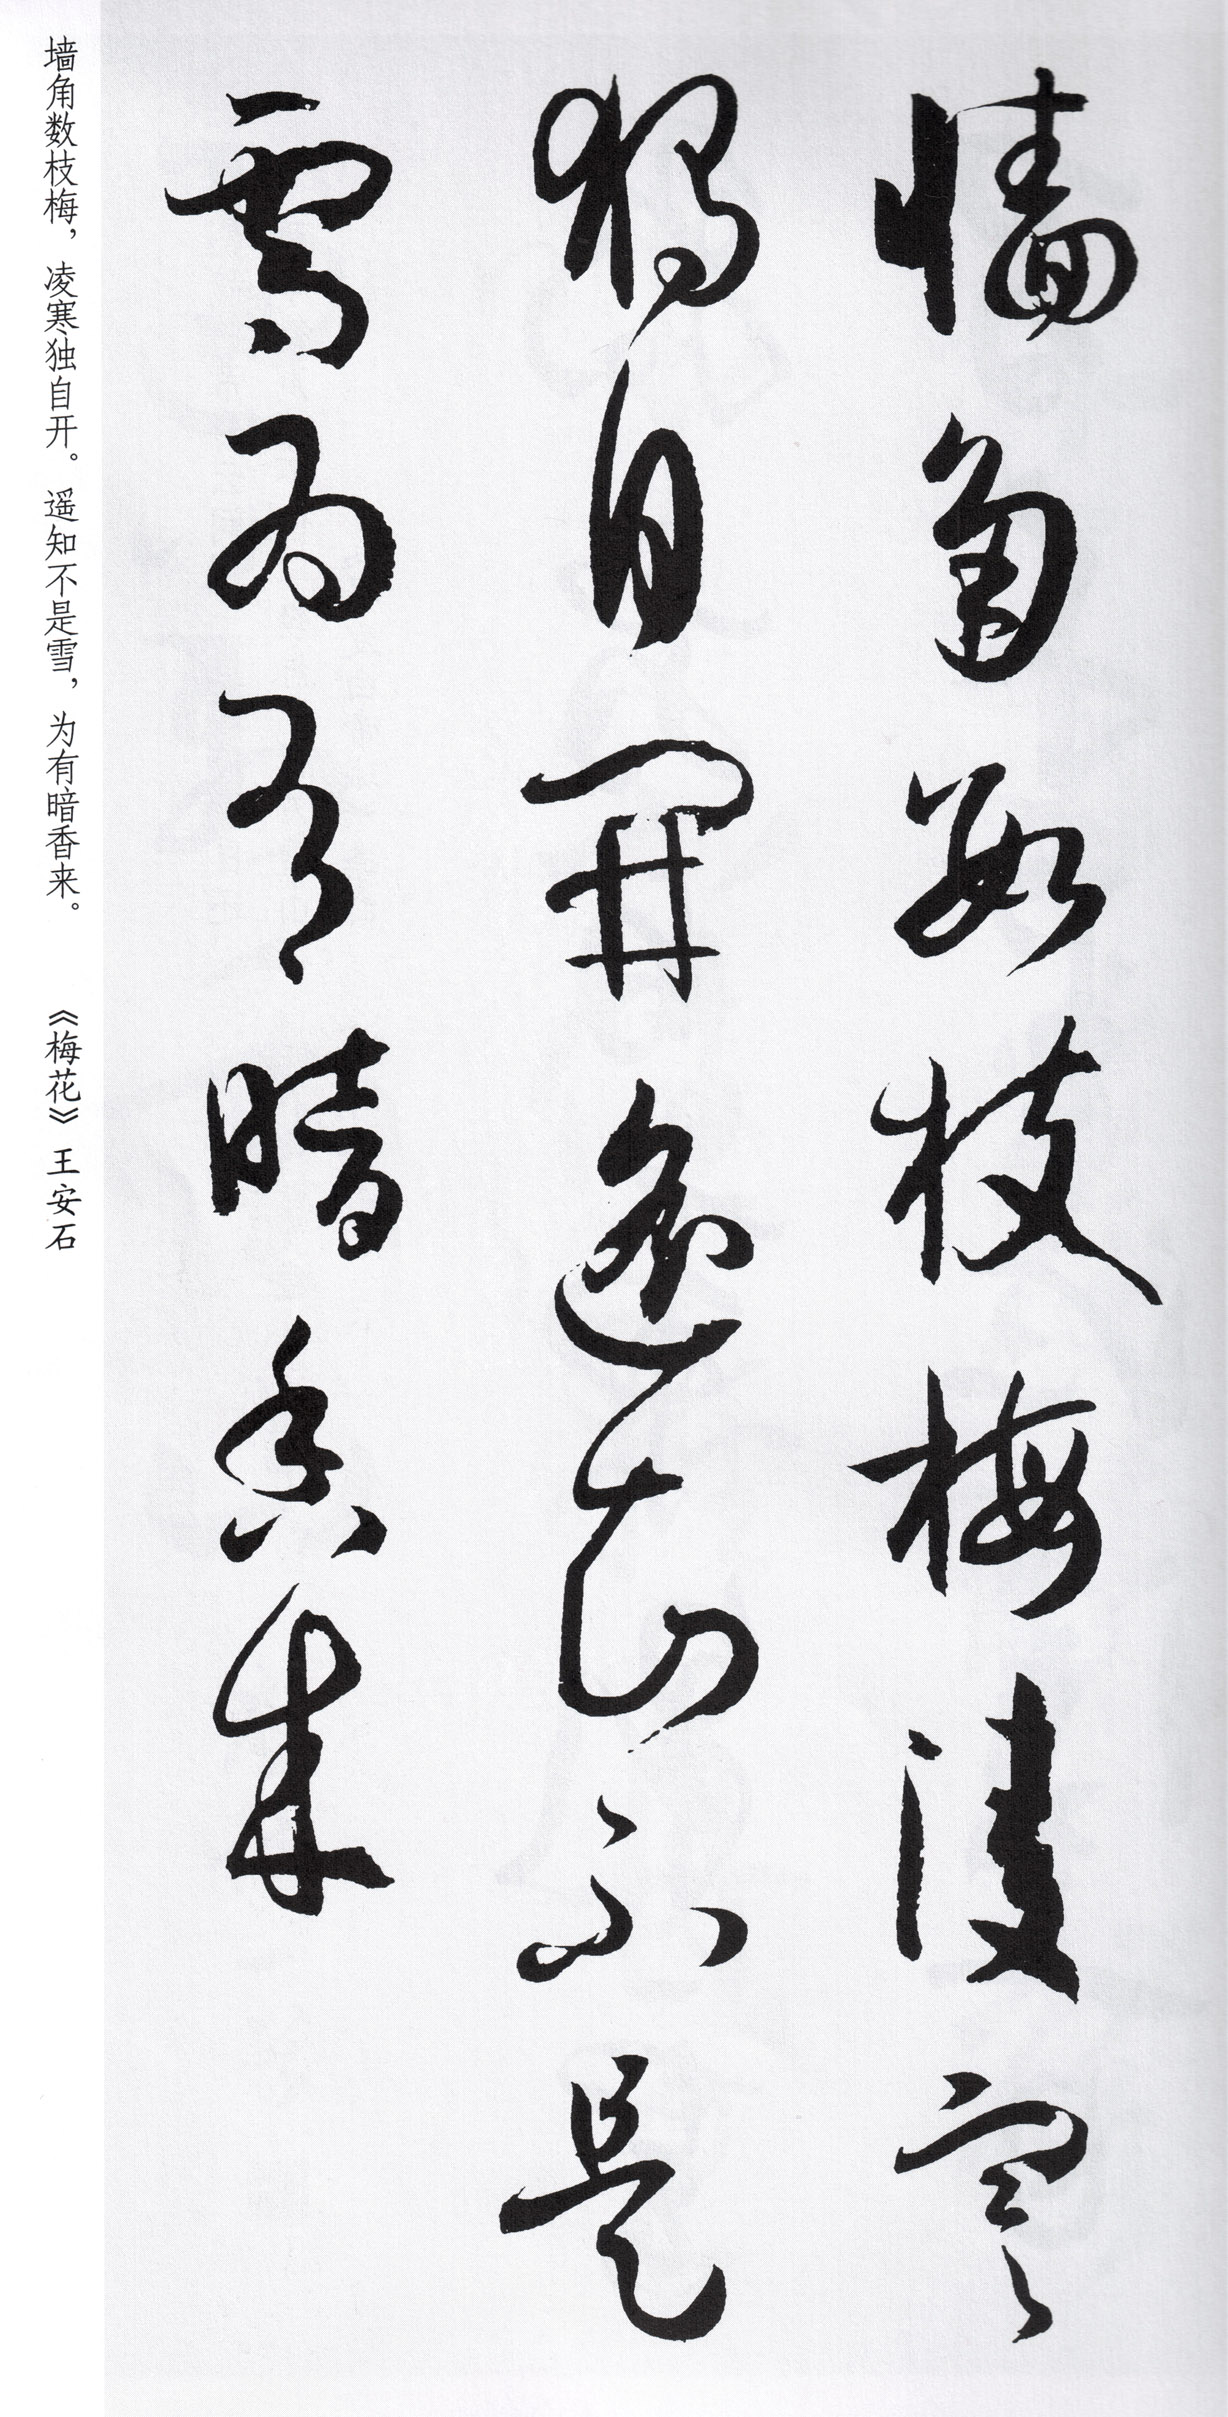 墙角数枝梅凌寒
独自開遥知不是
雪为有暗香来
墙角数枝梅，凌寒独自开。遥知不是雪，为有暗香来。 《梅花》 王安石